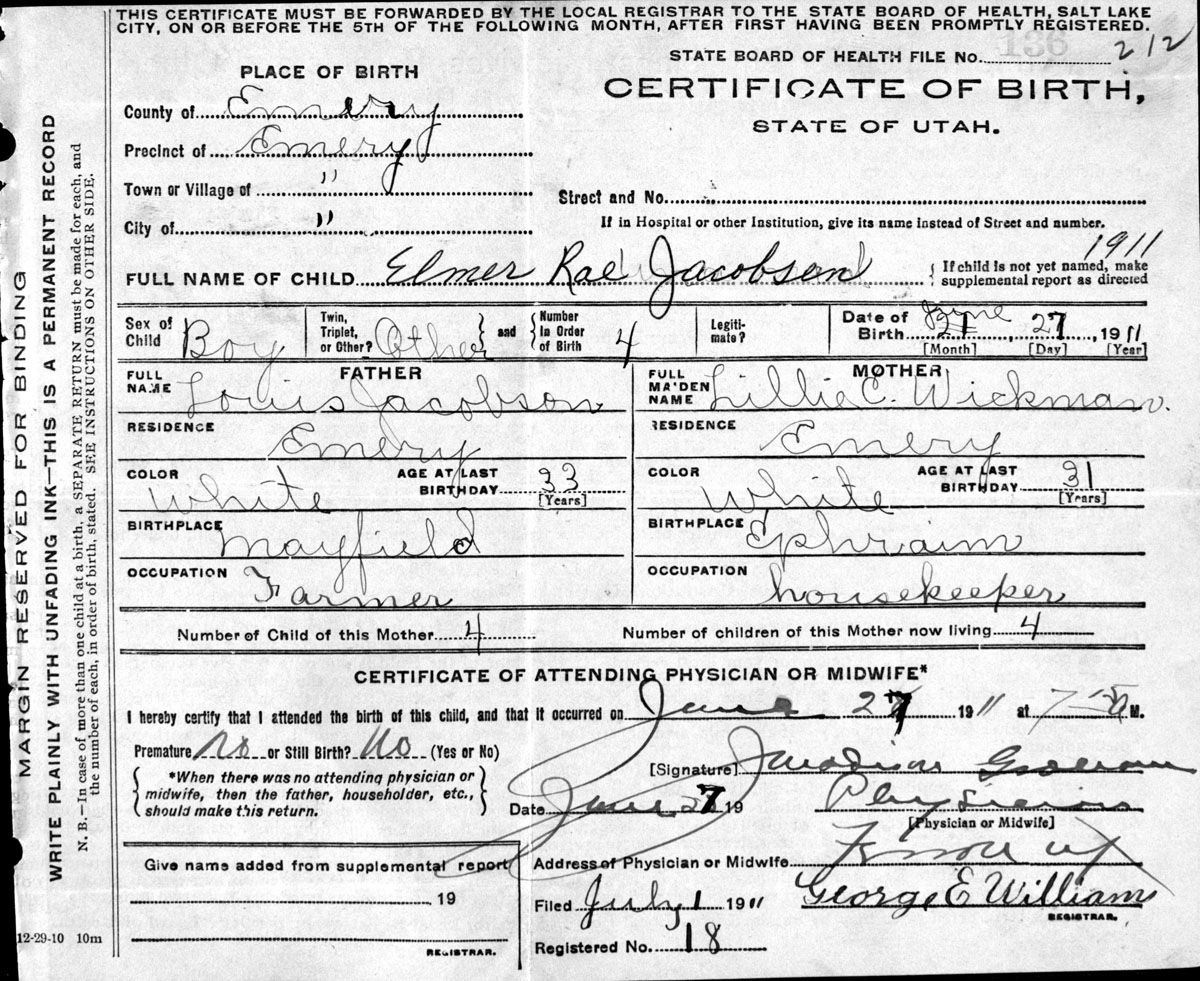 THIS CERTIFICATE MUST BE FORWARDED BY THE LOCAL REGISTRAR TO THE STATE BOARD OF HEALTH, SALT LAKE
CITY, ON OR BEFORE THE 5TH OF THE FOLLOWING MONTH, AFTER FIRST HAVING BEEN PROMPTLY REGISTERED.
136
STATE BOARD OF HEALTH FILE No. 212
PLACE OF BIRTH
CERTIFICATE OF BIRTH,
STATE OF UTAH.
County of Emery
Precinct of Emery
Town or Village of "
Street and No.
City of "
If in Hospital or other Institution, give its name instead of Street and number.
1911
FULL NAME OF CHILD Elmer Rae Jacobson { If child is not yet named, make
supplemental report as directed
Sex of Child Boy
Twin, Triplet, or Other? Other } and { Number In Order of Birth 4
Legitimate?
Date of Birth June 27, 1911
[Month] [Day] [Year]
FATHER
FULL NAME Louis Jacobson
RESIDENCE Emery
COLOR White AGE AT LAST BIRTHDAY 33 [Years]
BIRTHPLACE Mayfield
OCCUPATION Farmer
MOTHER
FULL MAIDEN NAME Lillie C. Wickman.
RESIDENCE Emery
COLOR White AGE AT LAST BIRTHDAY 31 [Years]
BIRTHPLACE Ephraim
OCCUPATION housekeeper
Number of Child of this Mother 4 Number of children of this Mother now living 4
CERTIFICATE OF ATTENDING PHYSICIAN OR MIDWIFE*
I hereby certify that I attended the birth of this child, and that it occurred on June 27 1911 at 7 M.
Premature No or Still Birth? No (Yes or No)
{ *When there was no attending physician or
midwife, then the father, householder, etc.,
should make this return. }
[Signature]
Date June 27 19 Physician
[Physician or Midwife]
Give name added from supplemental report
19
REGISTRAR.
Address of Physician or Midwife
Filed July 1 1911 George E Williams
REGISTRAR.
Registered No. 18
12-29-10 10m
MARGIN RESERVED FOR BINDING
WRITE PLAINLY WITH UNFADING INK—THIS IS A PERMANENT RECORD
N. B.—In case of more than one child at a birth, a SEPARATE RETURN must be made for each, and
the number of each, in order of birth, stated. SEE INSTRUCTIONS ON OTHER SIDE.